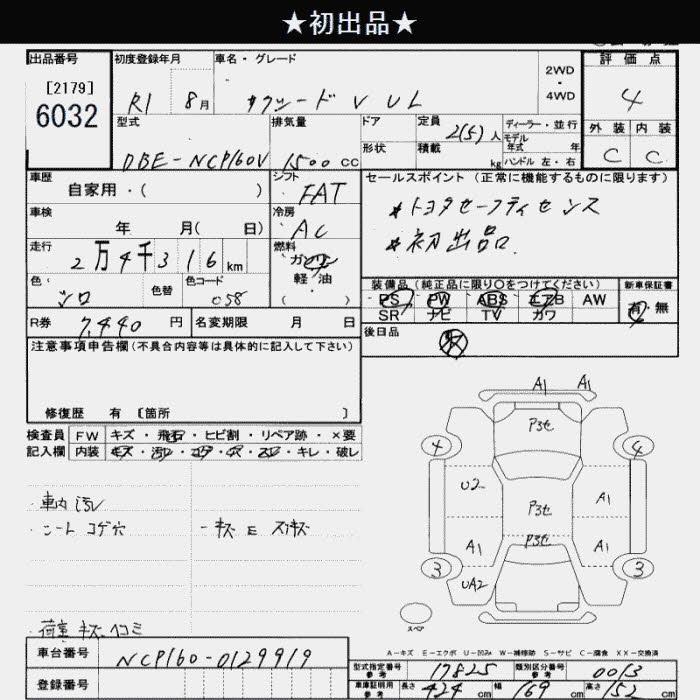 ★初出品★
出品番号 初度登録年月 車名・グレード 評価点
[2179]
6032
R1 8月 サクシード V UL 2WD・4WD 4
型式 排気量 ドア 定員 2(5)人 ディーラー・並行 外装 内装
形状 積載 kg モデル年式 年 ハンドル 左・右
DBE-NCP160V 1500 CC C C
車歴 シフト セールスポイント (正常に機能するものに限ります)
自家用・( ) FAT
★トヨタセーフティセンス
車検 冷房
年 月( 日) AC
★初出品
走行 燃料
2万4千316km ガソリン
軽・油
( )
色: 色替 色コード 装備品 (純正品に限り○をつけてください) 新車保証書
シロ 058 PS PW ABS エアB AW 有・無
SR ナビ TV カワ
R券 7,440円 名変期限 月 日 後日品
注意事項申告欄(不具合内容等は具体的に記入して下さい) 取
修復歴 有 〔箇所 〕
検査員 FW キズ・飛石・ヒビ割・リペア跡・×要
記入欄 内装 キズ・汚レ・コゲ・穴・スレ・キレ・破レ
A1 A1
P3セ
4 4
U2 P3セ A1
P3セ
A1 A1
3 3
UA2
スペア
車内 汚レ
シート コゲ穴 キズ E スリキズ
荷室 キズ ヘコミ
A-キズ E-エクボ U-凹み W-補修跡 S-サビ C-腐食 XX-交換済
車台番号 NCP160-0129919 型式指定番号 参考 17825 類別区分番号 参考 0013
登録番号 車庫証明用 参考 長さ 424cm 幅 169cm 高さ 152cm